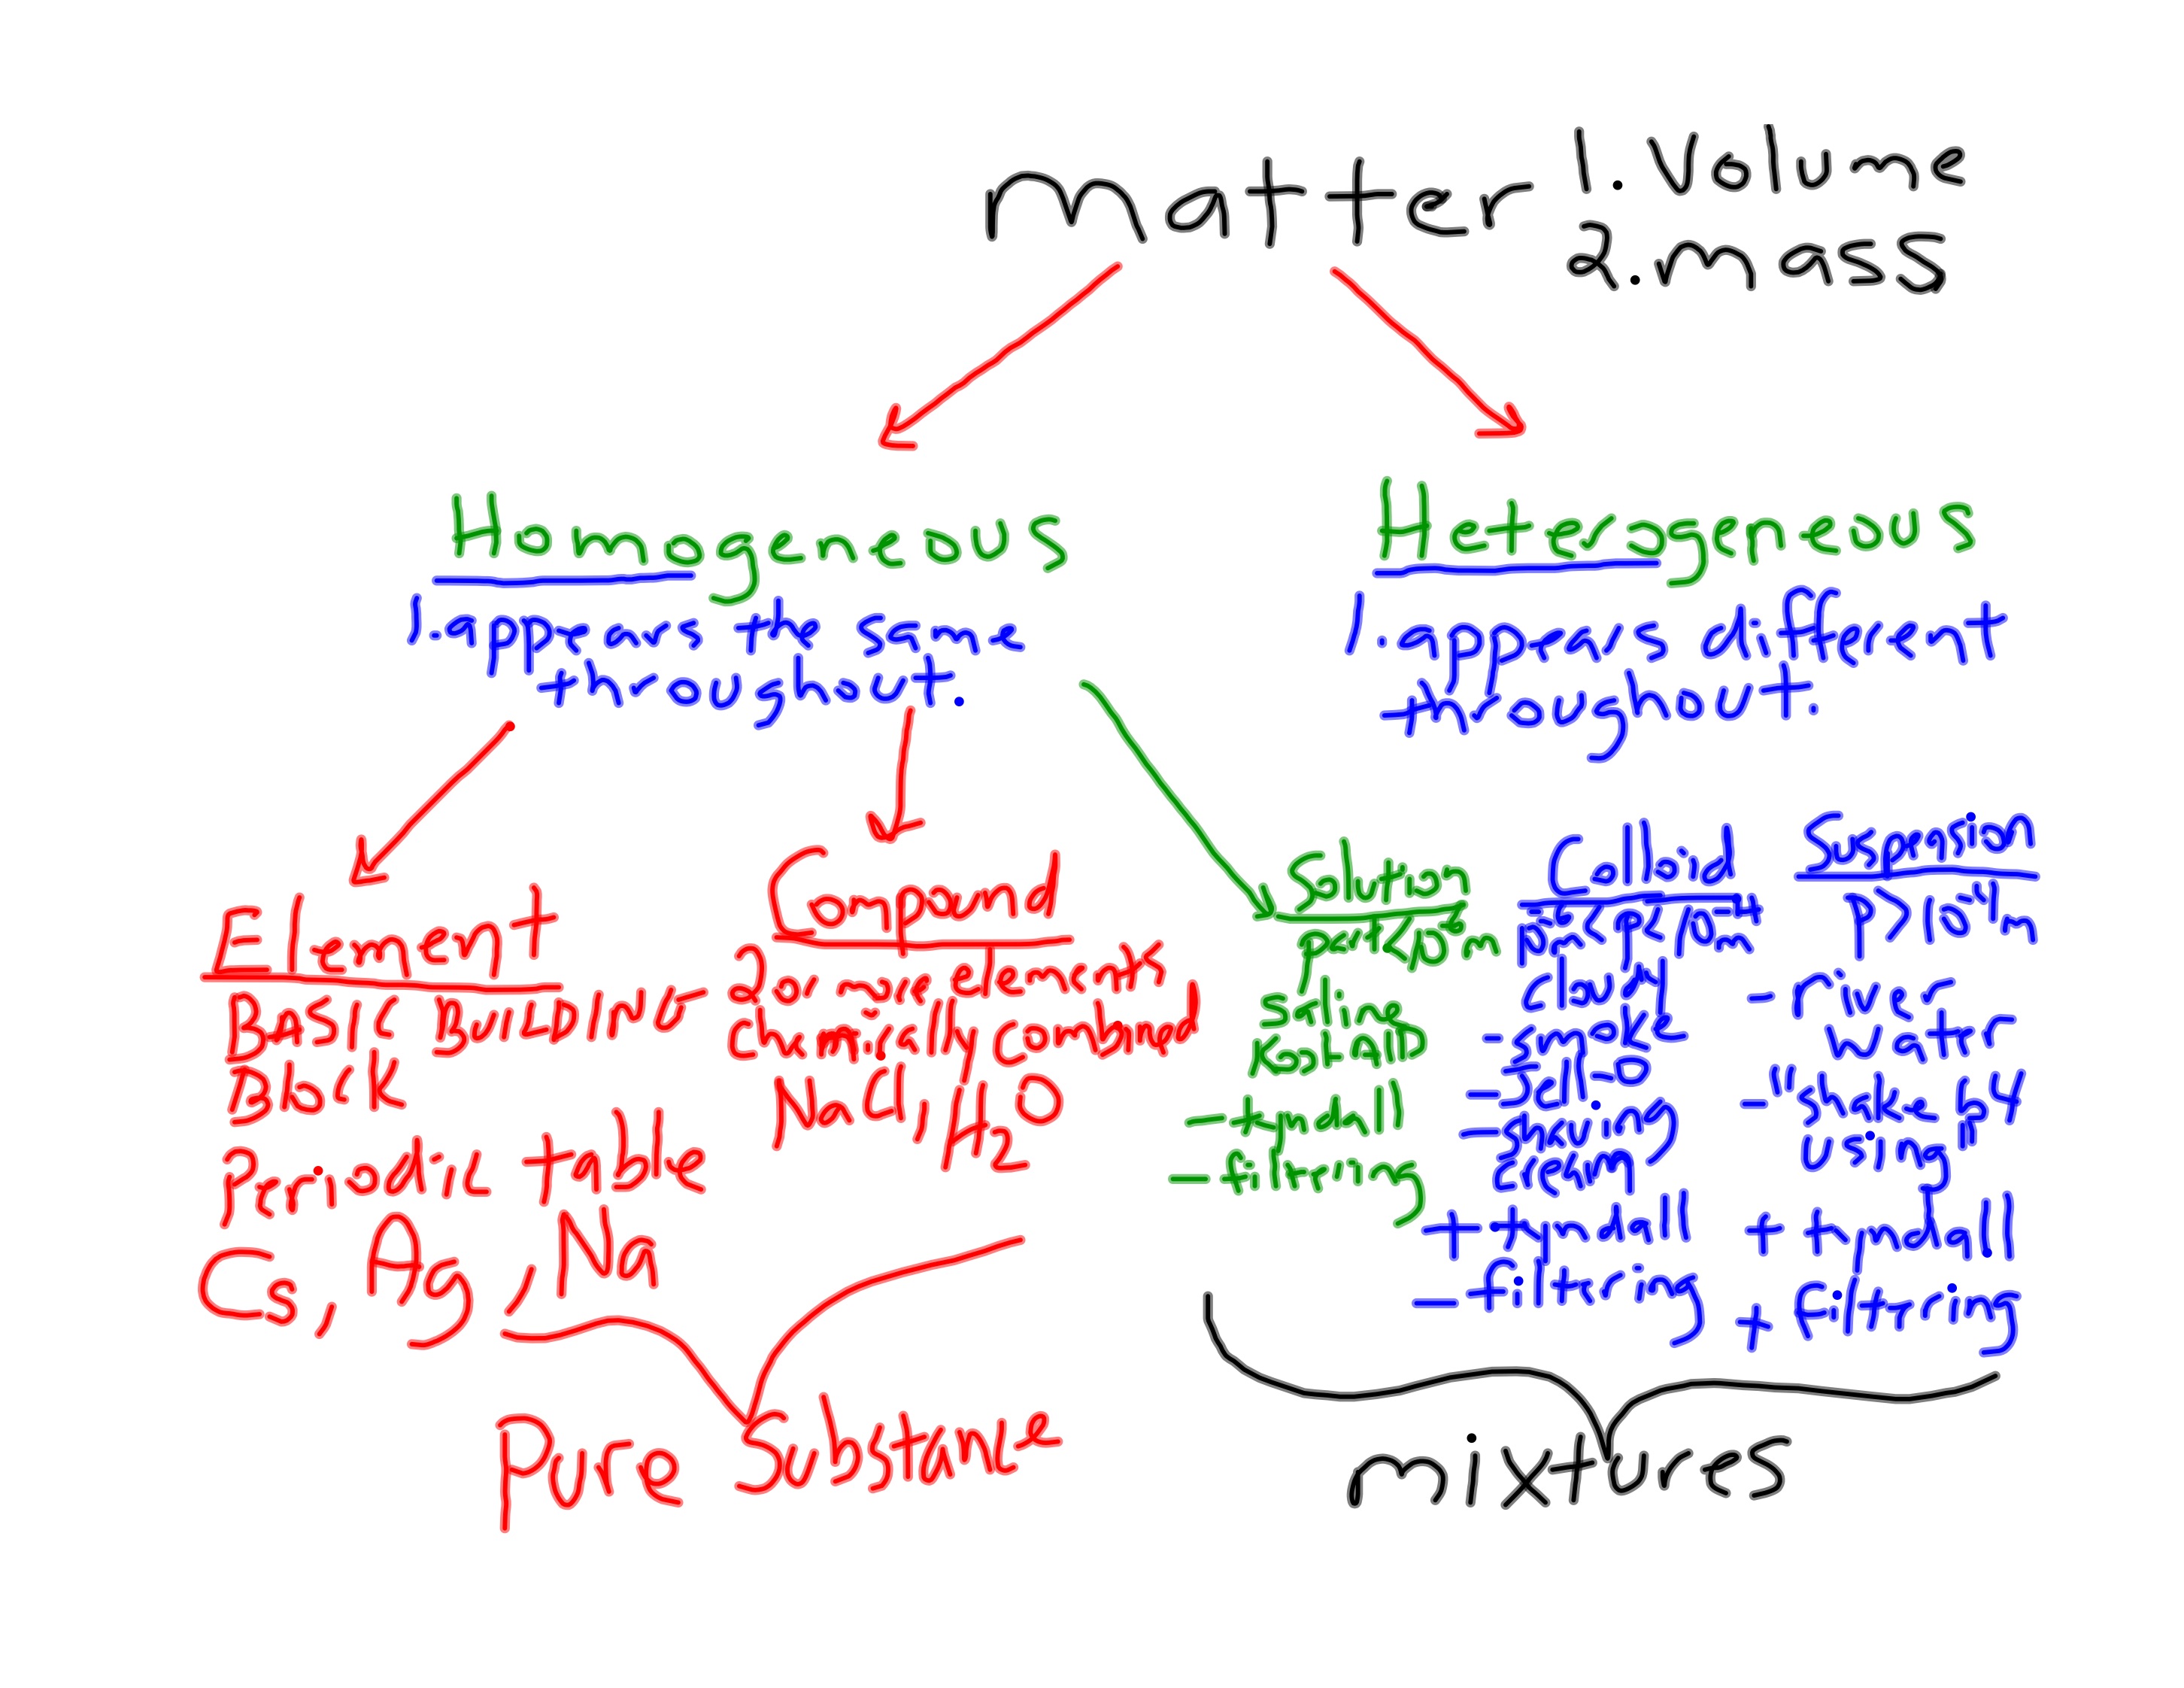 matter
1. Volume
2. mass
Homogeneous
1. appears the same
throughout.
Heterogeneous
1. appears different
throughout.
Element
BASIC BUILDING
Block
Periodic table
Cs, Ag, Na
Compound
2 or more elements
chemically combined
NaCl, H2O
Solution
part<10 m
saline
Kool AID
- tyndall
- filtering
Colloid
<p<10-4 m
cloudy
- smoke
- Jell-O
- shaving
cream
+ tyndall
- filtering
Suspension
p>10-4 m
- river
water
- "shake b4
using"
+ tyndall
+ filtering
Pure Substance
mixtures